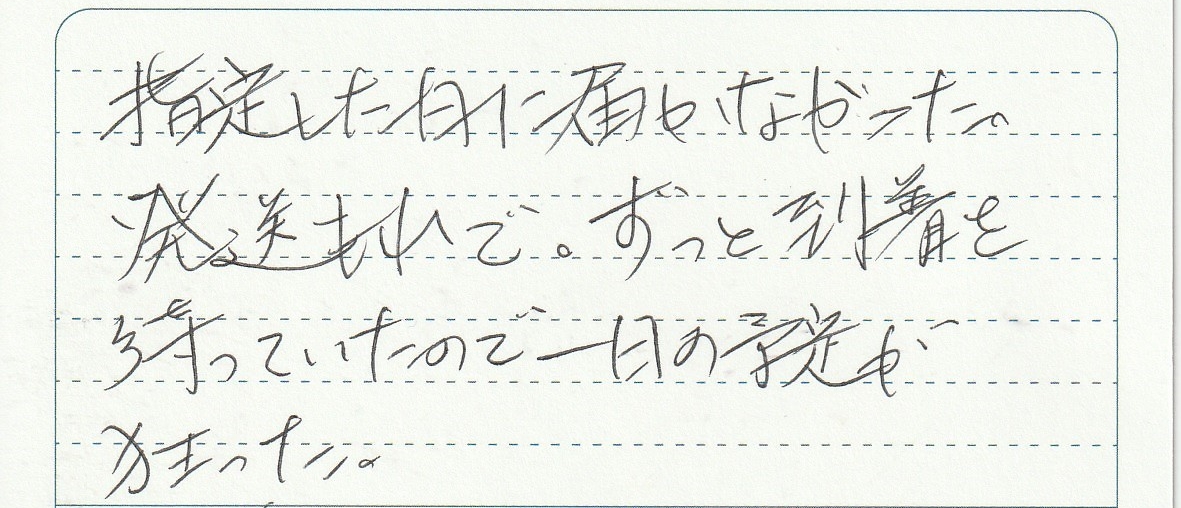 指定した日に届かなかった。
発送もれで。ずっと到着を
待っていたので一日の予定が
狂った。